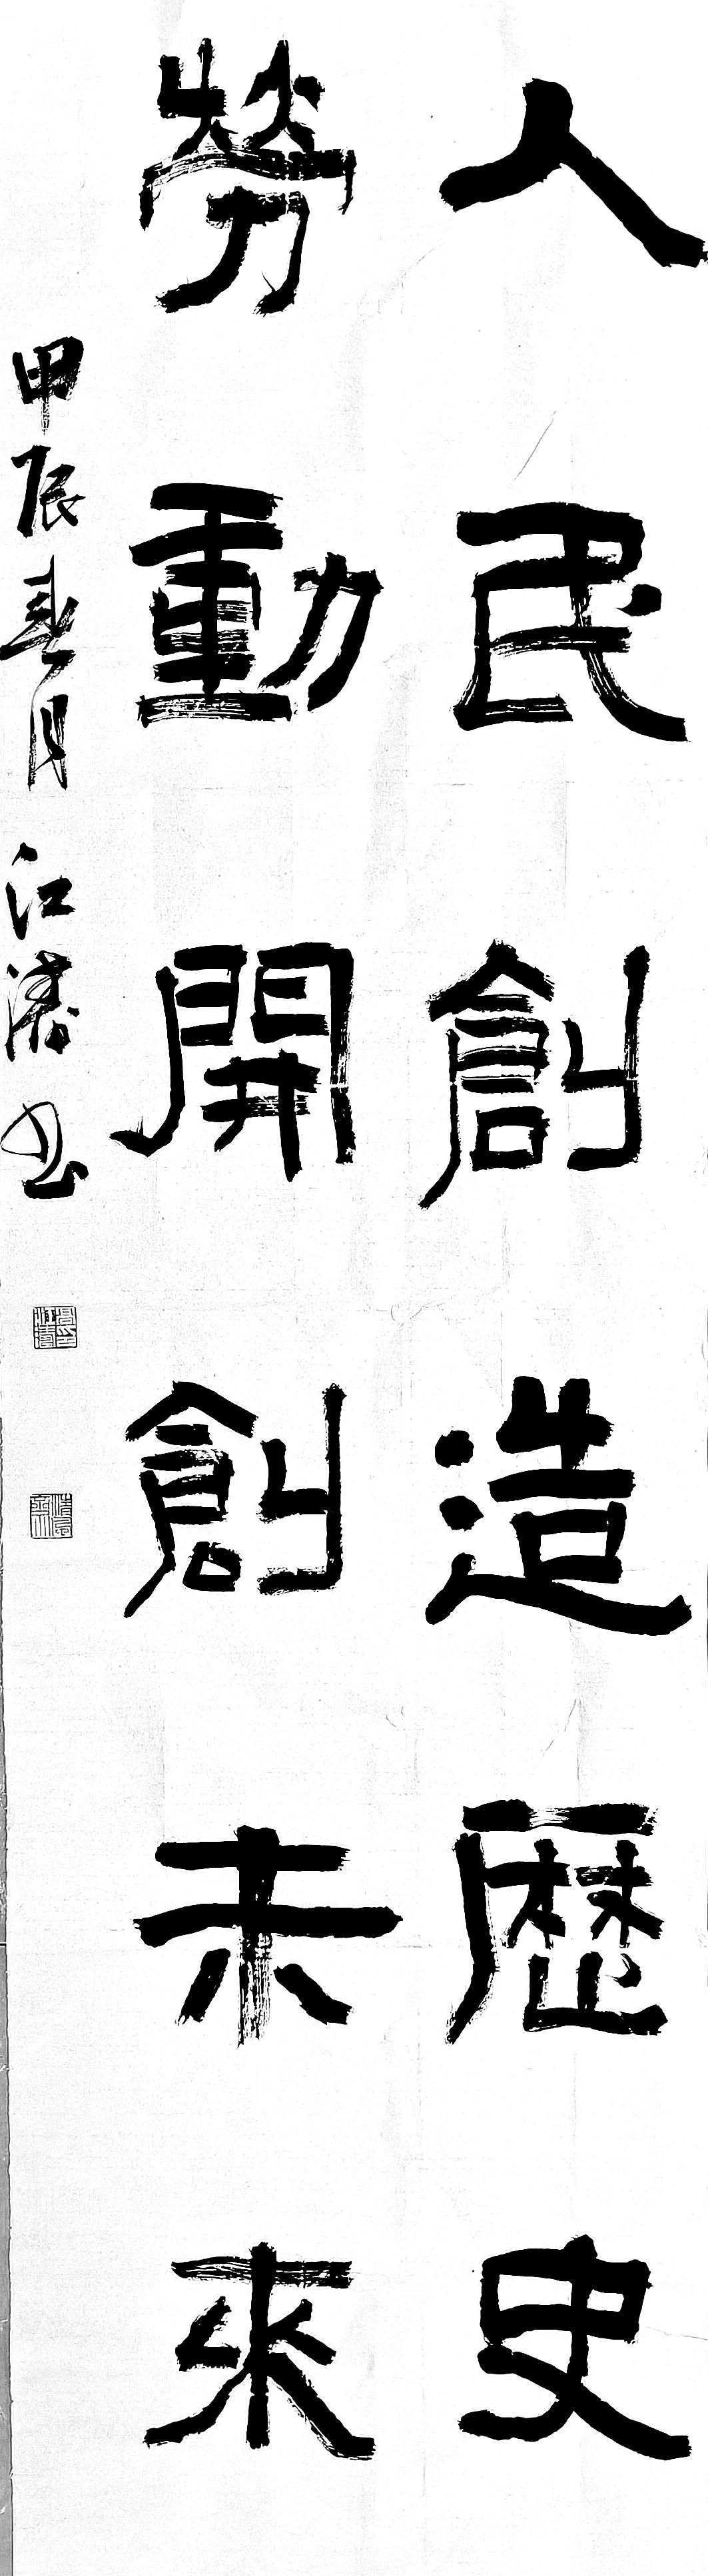 人民創造歷史
勞動開創未來
甲辰春月江濤书